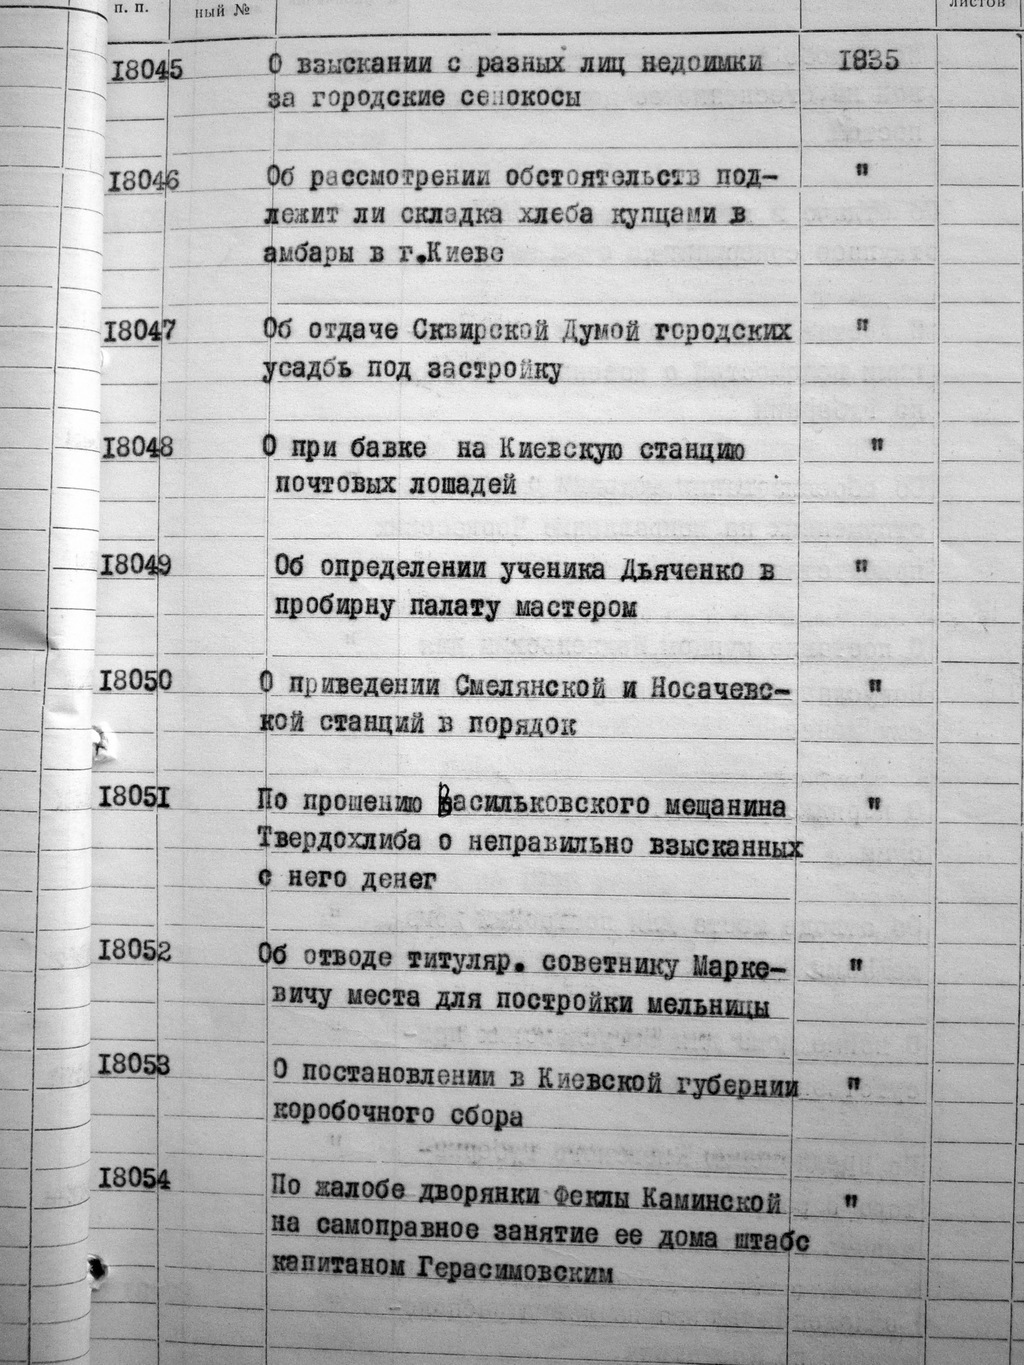 п. п. ный № листов
18045 О взыскании с разных лиц недоимки 1835
за городские сенокосы
18046 Об рассмотрении обстоятельств под- "
лежит ли складка хлеба купцами в
амбары в г.Киеве
18047 Об отдаче Сквирской Думой городских "
усадбь под застройку
18048 О при бавке на Киевскую станцию "
почтовых лошадей
18049 Об определении ученика Дьяченко в "
пробирну палату мастером
18050 О приведении Смелянской и Носачевс- "
кой станций в порядок
18051 По прошению Васильковского мещанина "
Твердохлиба о неправильно взысканных
с него денег
18052 Об отводе титуляр. советнику Марке- "
вичу места для постройки мельницы
18053 О постановлении в Киевской губернии "
коробочного сбора
18054 По жалобе дворянки Феклы Каминской "
на самоправное занятие ее дома штабс
капитаном Герасимовским